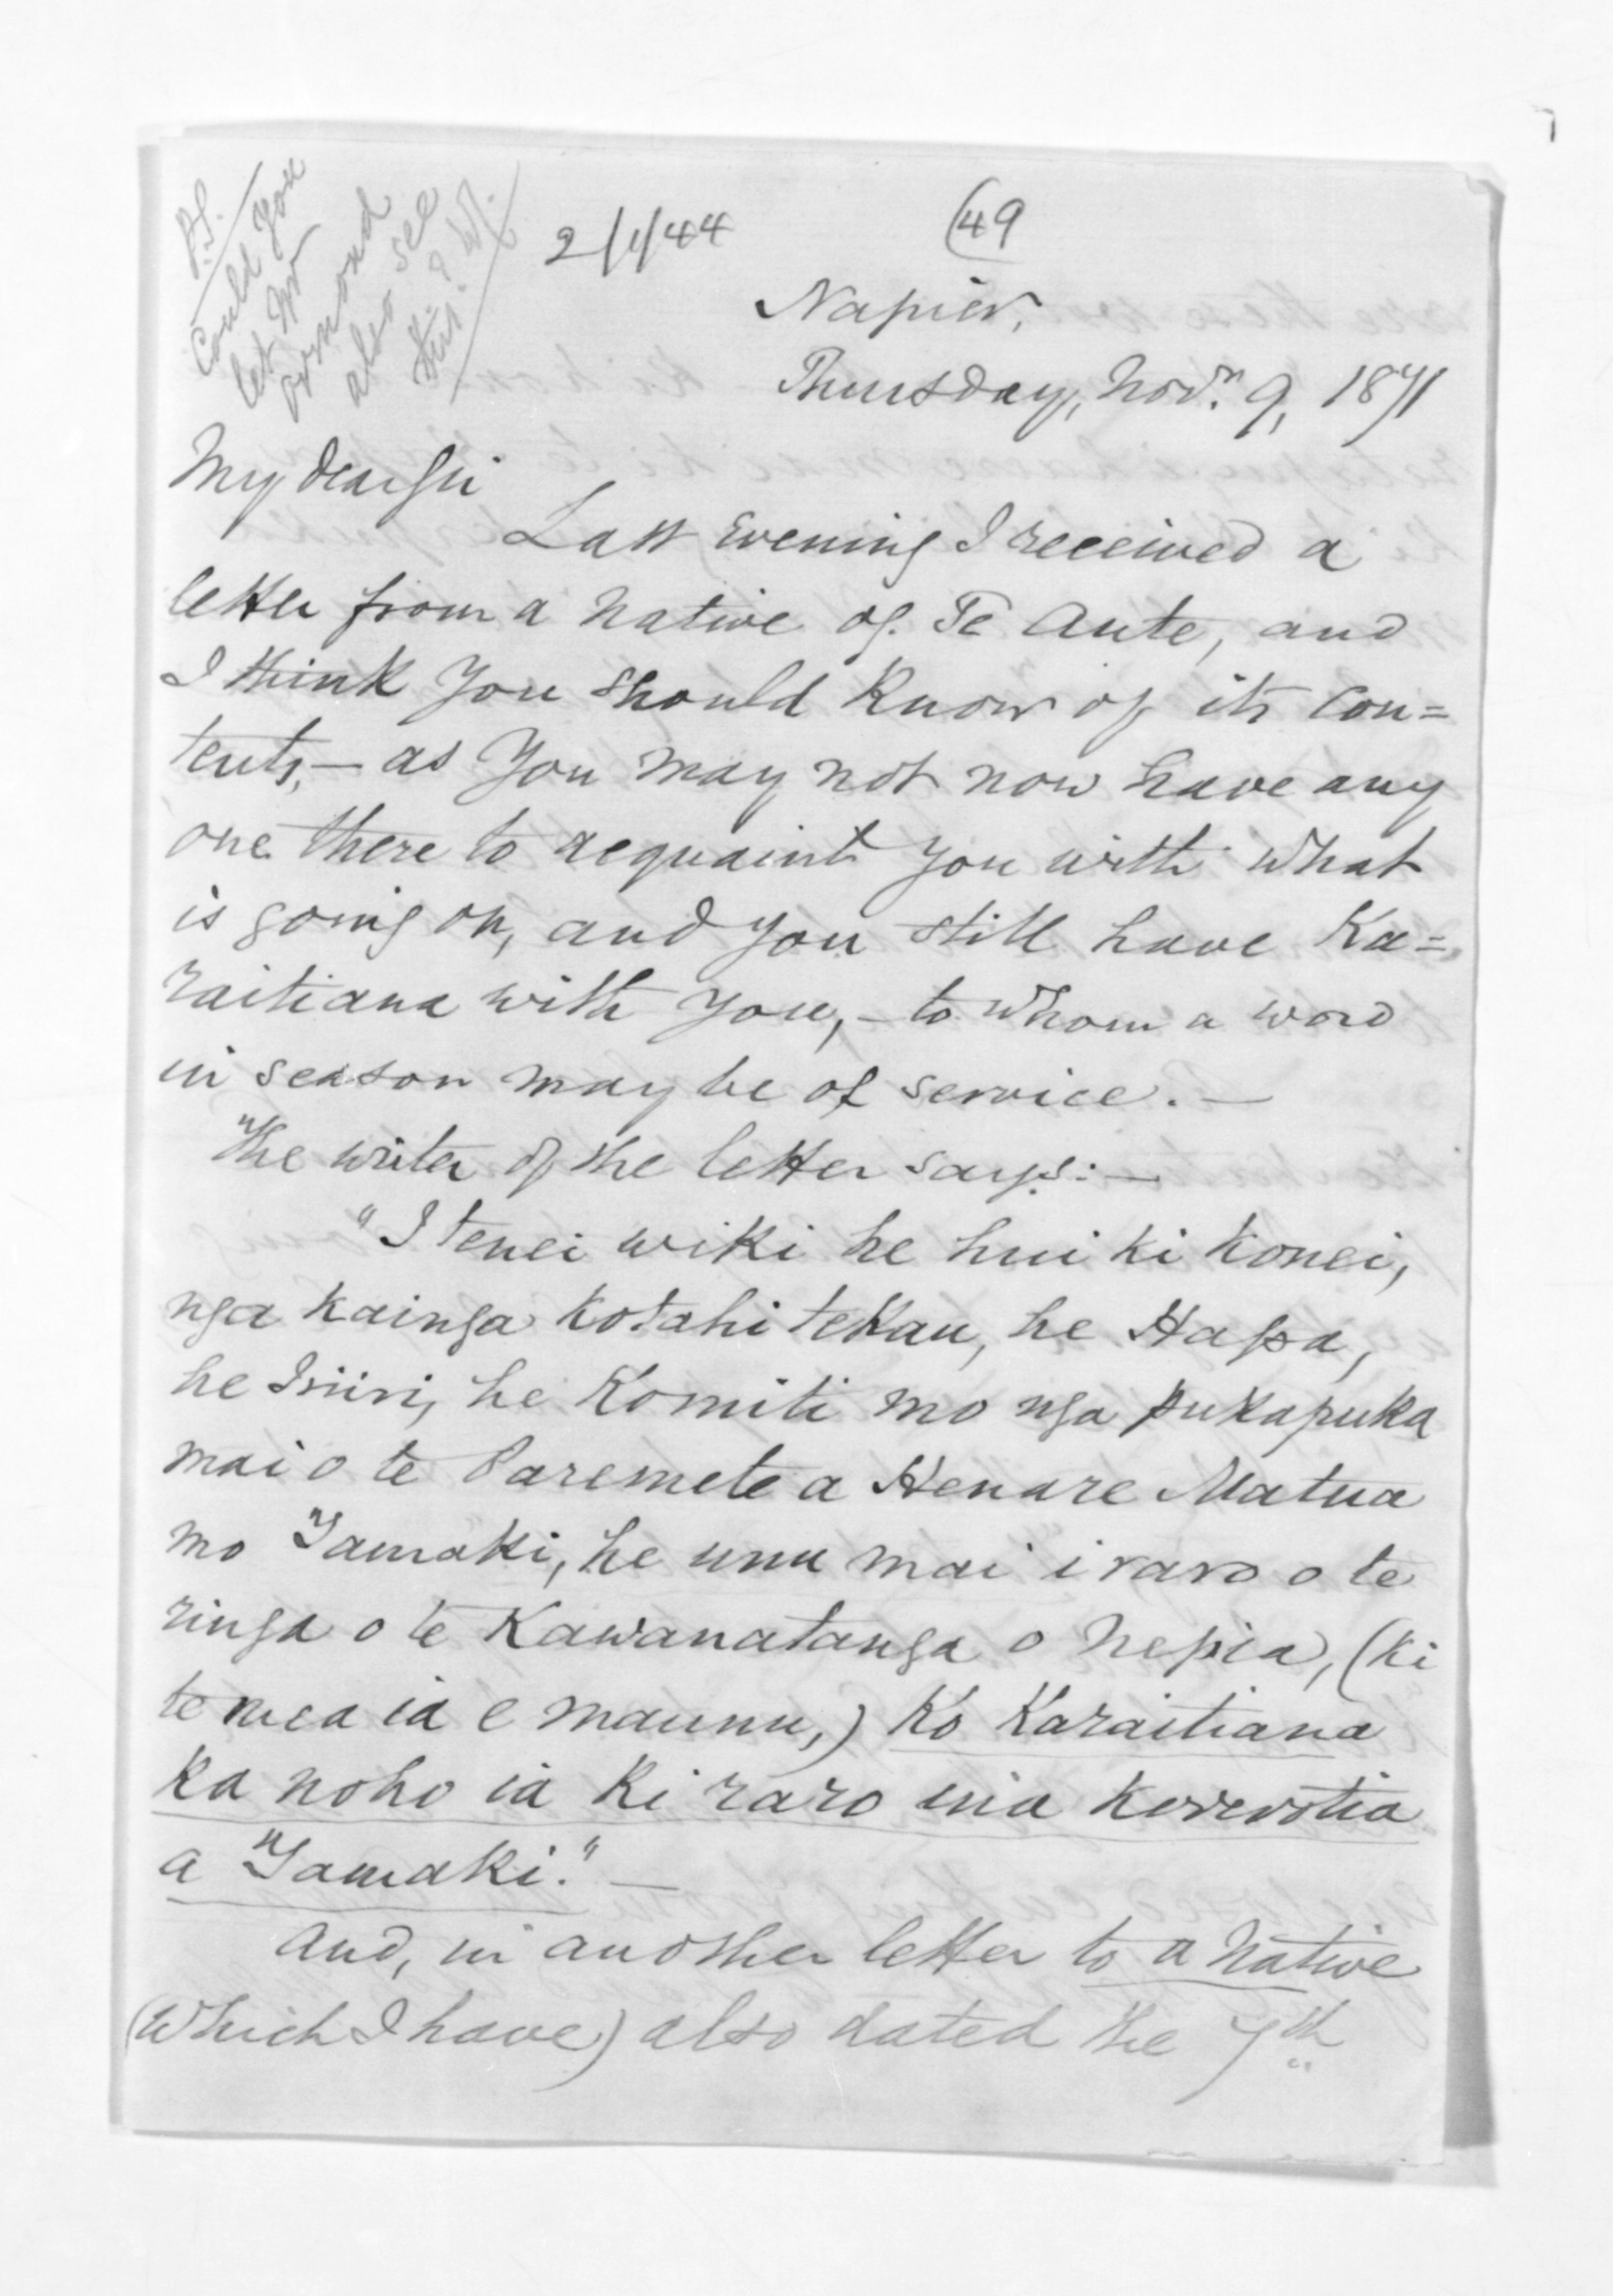 P.S.
Could you
let Mr
Ormond
also see
this.
2/1/44
49
Napier,
Thursday, Novr. 9, 1871
My dear Sir
Last Evening I received a
letter from a Native of Te Aute, and
I think you should know of its con=
tents,— as you may not now have any
one there to acquaint you with what
is going on, and you still have Ka=
raitiana with you,— to whom a word
in season may be of service.—
The writer of the letter says:—
"I tenei wiki he hui ki konei,
nga kainga kotahi tekau, he Hapa,
he Iriiri, he Komiti mo nga pukapuka
mai o te Paremete a Henare Matua
mo Tamaki, he unu mai i raro o te
ringa o te Kawanatanga o Nepia, (ki
te mea ia e maunu,) Ko Karaitiana
ka noho ia ki raro inia korerotia
a Tamaki."—
And, in another letter to a Native
(which I have) also dated the 7th